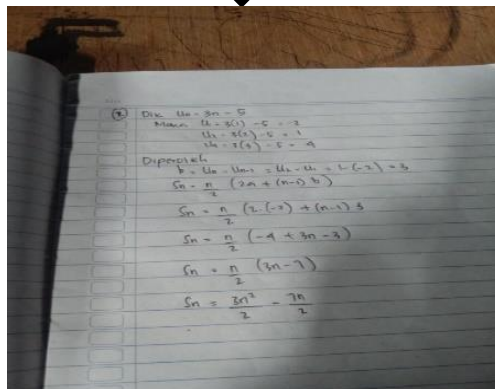 Dik Un = 3n - 5
Maka U1 = 3(1) - 5 = -2
U2 = 3(2) - 5 = 1
U3 = 3(3) - 5 = 4
Diperoleh
b = Un - Un-1 = U2 - U1 = 1 - (-2) = 3
Sn = n/2 (2a + (n-1) b)
Sn = n/2 (2.(-2) + (n-1) 3
Sn = n/2 (-4 + 3n - 3)
Sn = n/2 (3n - 7)
Sn = 3n²/2 - 7n/2